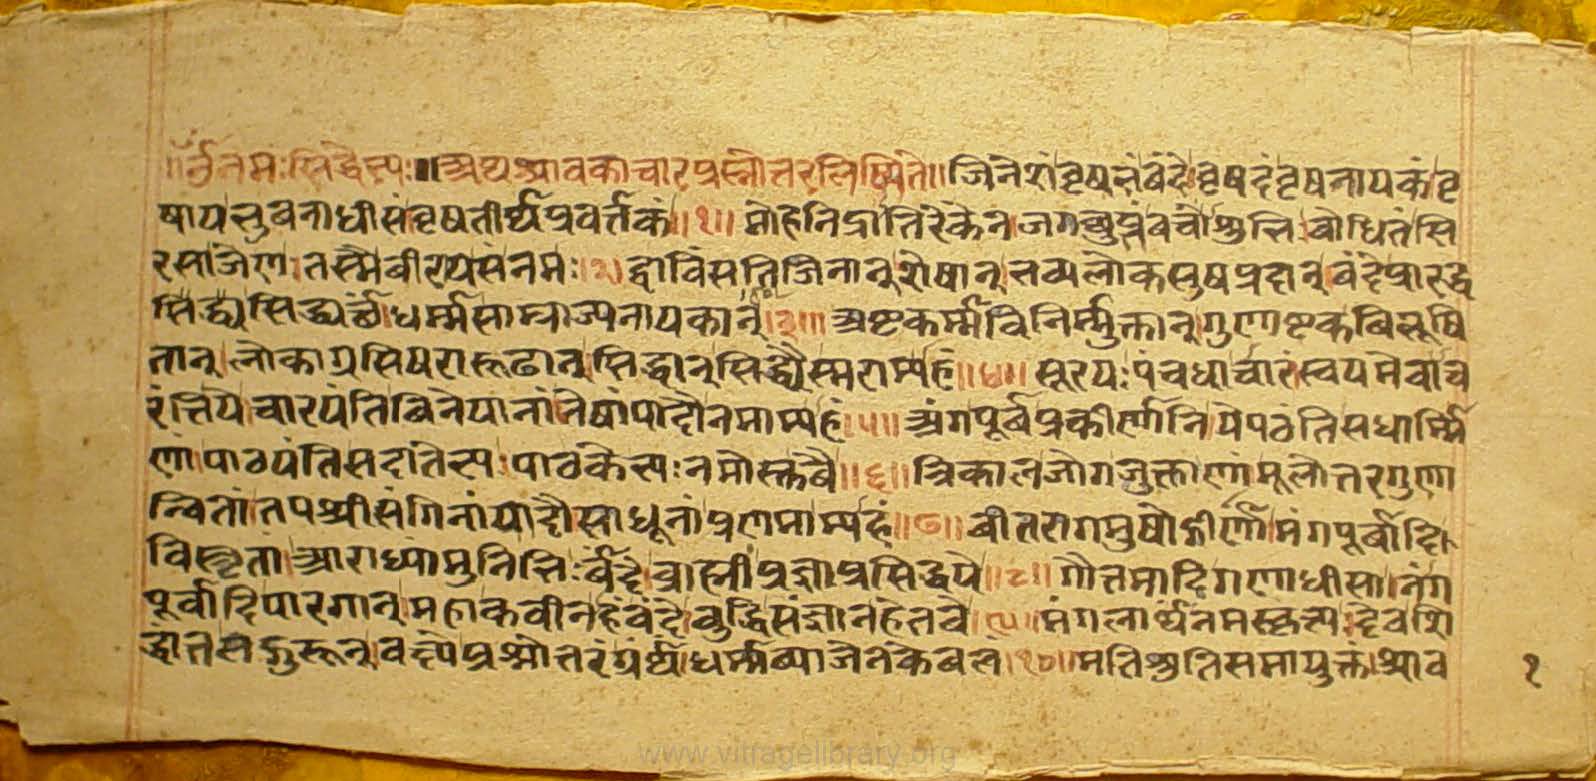 ॥ॐ नमः सिद्धेभ्यः॥ अथ श्रावकाचारप्रस्नोत्तर लिष्यते॥ जिनेशं वृषभं वंदे वृषदं वृषनायकं वृ
षाय भुवनाधीसं वृषतीर्थप्रवर्त्तकं॥१॥ मोहनिद्रातिरेकेन जगत्सुप्तं वचोंशुभिः बोधितं
तस्मै वीराय नमः॥२॥ द्वाविंसतिजिनान् शेषान् भव्यलोकसुषप्रदान् वंदे प्रारद्ध
सिद्ध्यर्थं धर्म्मसाम्राज्यनायकान्॥३॥ अष्टकर्म्मविनिर्म्मुक्तान् गुणाष्टकविभूषि
तान् लोकाग्रसिषरारूढान् सिद्धान् सिद्ध्यै स्मराम्यहं॥४॥ सूरयः पंचधाचारं स्वयमेवाच
रंति ये चारयंति विनेयानां तेषां पादौ नमाम्यहं॥५॥ अंगपूर्वप्रकीर्णानि ये पठंति सधर्म्मि
णां पाठयंति सदा तेभ्यः पाठकेभ्यः नमोस्तु वै॥६॥ त्रिकालजोगजुक्ताणां मूलोत्तरगुणा
न्वितां तपश्रीसंगिनां पादौ साधूनां प्रणमाम्यहं॥७॥ वीतरागमुषोद्गीर्णामंगपूर्वादि
विस्तृतां आराध्यां मुनिभिः वंदे ब्राह्मीं प्रज्ञाप्रसिद्धये॥८॥ गौत्तमादिगणाधीसानंग
पूर्वादिपारगान् महाकवीनहं वंदे बुद्धिसंज्ञानहेतवे॥९॥ मंगलार्थं नमस्कृत्य देवशि
द्धांतसद्गुरून् वक्ष्ये प्रश्नोत्तरं ग्रंथं धर्म्मव्याजेन केवल॥१०॥ मतिश्रुतिसमायुक्तं श्राव
१
www.vitragelibrary.org